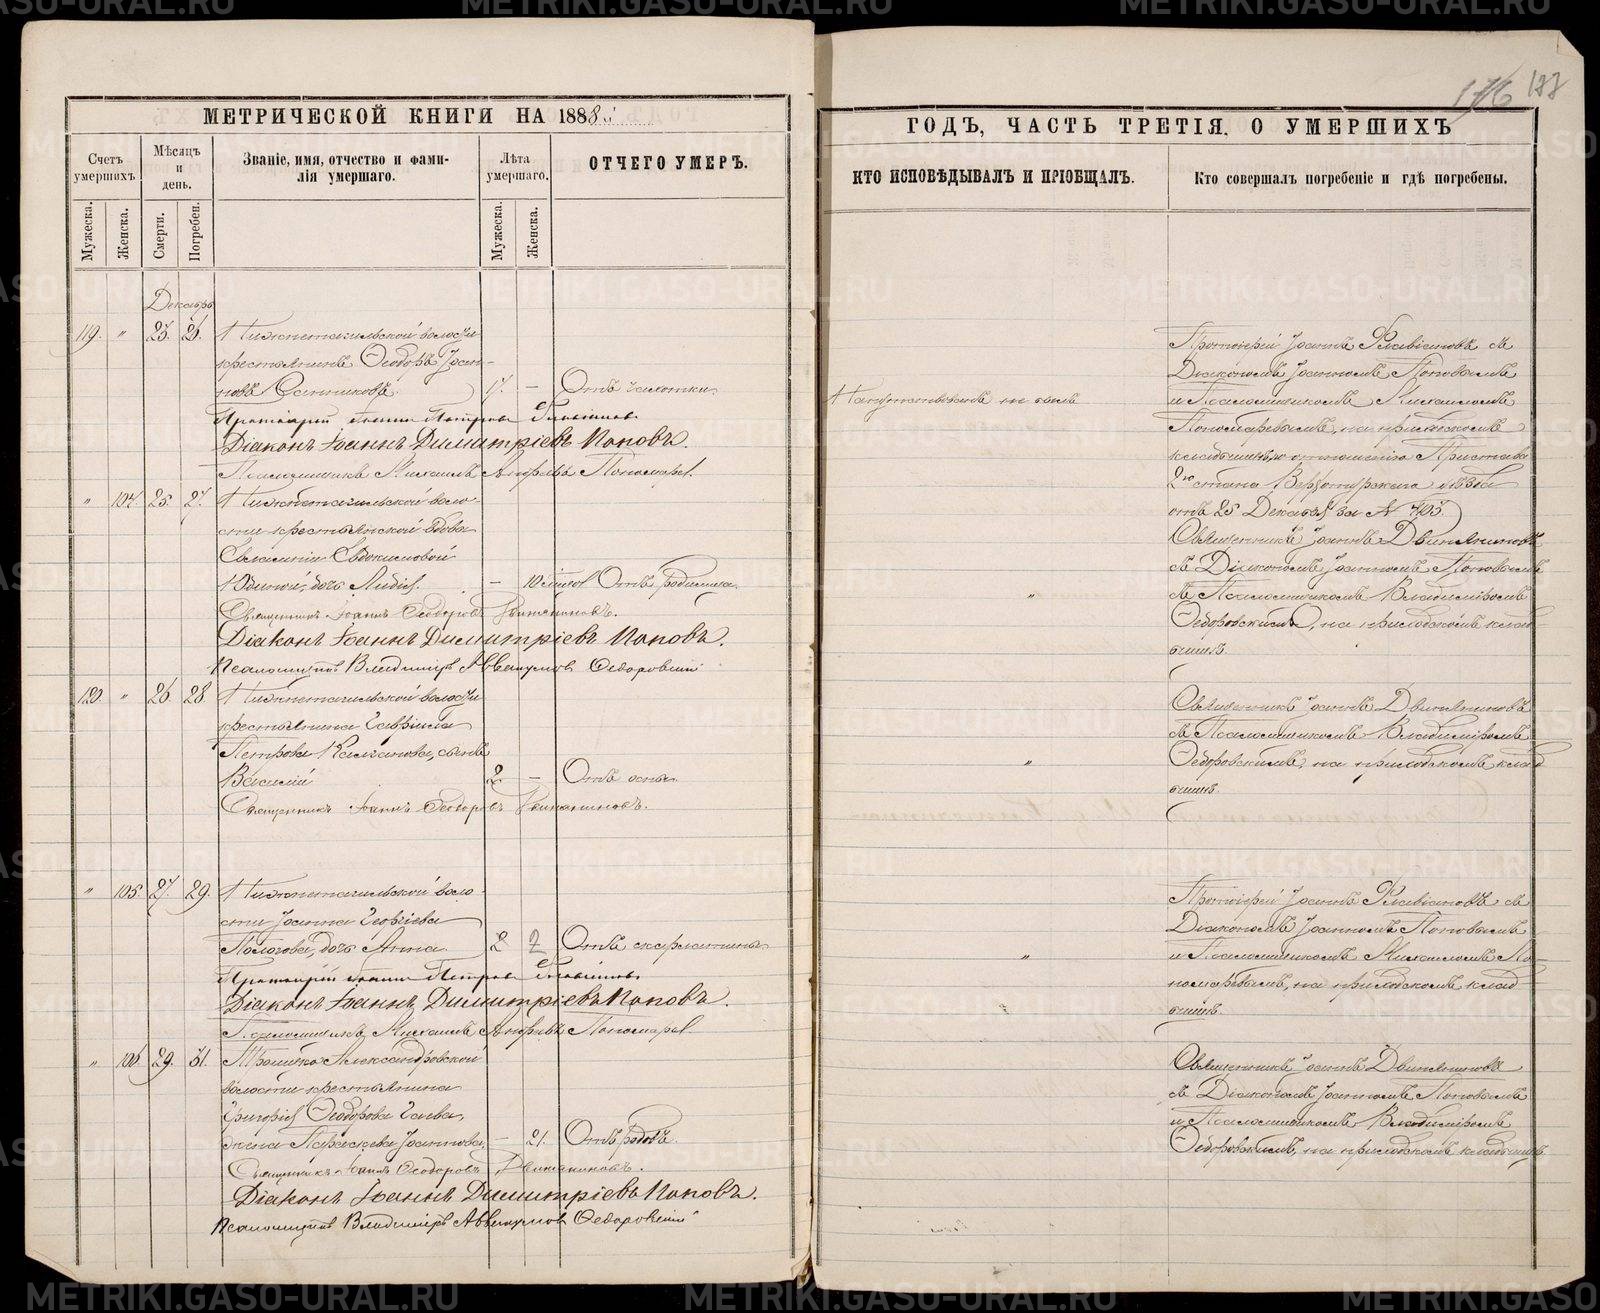 МЕТРИЧЕСКОЙ КНИГИ НА 1888
Счетъ умершихъ.
Мѣсяцъ и день.
Званіе, имя, отчество и фами-
лія умершаго.
Лѣта умершаго.
ОТЧЕГО УМЕРЪ.
Мужеска.
Женска.
Смерти.
Погребен.
Мужеска.
Женска.
Декабрь
119. " 23. 26. Нижнетагильской волости
крестьянинъ Ѳеодоръ Іоан-
новъ 17. — Отъ чахотки
Протоіерей Іоаннъ Петровъ Флавіановъ.
Діаконъ Іоаннъ Димитріевъ Поповъ.
Псаломщикъ Михаилъ Андреевъ Пономарев.
" 104. 25. 27. Нижнетагильской воло-
сти крестьянской вдовы
Евдокимовой
Юдиной, дочь Лидія. — Отъ родимца.
Священникъ Іоаннъ Ѳеодоровъ Двиняниновъ.
Діаконъ Іоаннъ Димитріевъ Поповъ.
Псаломщикъ Владиміръ Аввакумовъ Ѳедоровскій
120. " 26. 28. Нижнетагильской волости
крестьянина Гавріила
Петрова сынъ
Василій 2 — Отъ оспы.
Священникъ Іоаннъ Ѳеодоровъ Двиняниновъ.
" 105. 27. 29. Нижнетагильской воло-
сти Іоанна Георгіева
дочь Анна. 2 Отъ скарлатины
Протоіерей Іоаннъ Петровъ Флавіановъ.
Діаконъ Іоаннъ Димитріевъ Поповъ.
Псаломщикъ Михаилъ Андреевъ Пономарев.
" 106. 29. 31. Троицко-Александровской
волости крестьянина
Григорія Ѳеодорова
жена Параскева Іоаннова, — 21. Отъ родовъ.
Священникъ Іоаннъ Ѳеодоровъ Двиняниновъ.
Діаконъ Іоаннъ Димитріевъ Поповъ.
Псаломщикъ Владиміръ Аввакумовъ Ѳедоровскій
176 177
ГОДЪ, ЧАСТЬ ТРЕТІЯ, О УМЕРШИХЪ
КТО ИСПОВѢДЫВАЛЪ И ПРІОБЩАЛЪ.
Кто совершалъ погребеніе и гдѣ погребены.
Протоіерей Іоаннъ Флавіановъ съ
Діакономъ Іоанномъ Поповымъ
Напутствованъ не былъ и Псаломщикомъ Михаиломъ
Пономаревымъ, на приходскомъ
кладбищѣ, по отношенію Пристава
2го стана Верхотурскаго уѣзда
отъ 25 Декабря за № 705.
Священникъ Іоаннъ Двиняниновъ
съ Діакономъ Іоанномъ Поповымъ
" съ Псаломщикомъ Владиміромъ
Ѳедоровскимъ, на приходскомъ клад-
бищѣ.
Священникъ Іоаннъ Двиняниновъ
съ Псаломщикомъ Владиміромъ
" Ѳедоровскимъ, на приходскомъ клад
бищѣ.
Протоіерей Іоаннъ Флавіановъ съ
Діакономъ Іоанномъ Поповымъ
" и Псаломщикомъ Михаиломъ По-
номаревымъ, на приходскомъ клад
бищѣ.
Священникъ Іоаннъ Двиняниновъ
съ Діакономъ Іоанномъ Поповымъ
и Псаломщикомъ Владиміромъ
Ѳедоровскимъ, на приходскомъ кладбищѣ.
METRIKI.GASO-URAL.RU